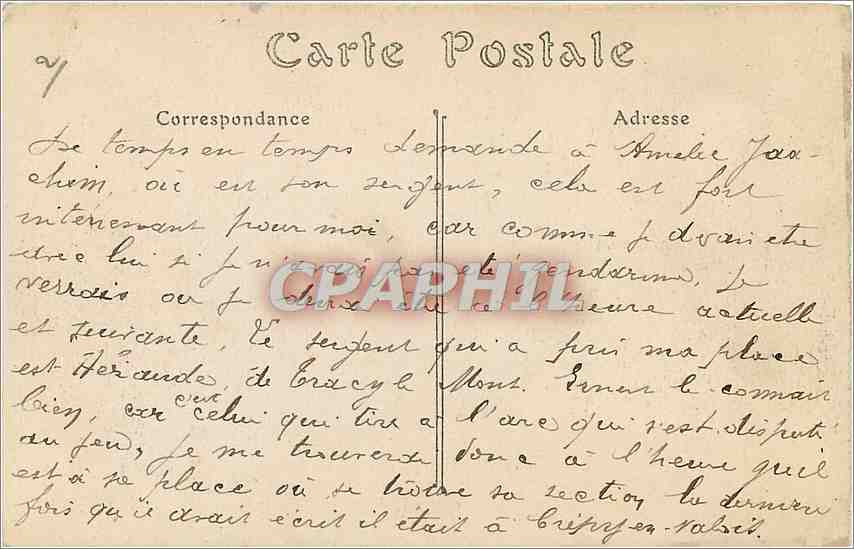 Carte Postale
Correspondance
Adresse
De temps en temps demande à Amélie Joa-
chim, où est son sergent, cela est fort
intéressant pour moi, car comme je devais être
avec lui si je n'avais pas été gendarme, je
verrais où je dois être à l'heure actuelle
et suivante, le sergent qui a pris ma place
est de Tracy le Mont. Ernest le connait
bien, car c'est celui qui tire à l'arc qui s'est disputé
au jeu, je me trouverai donc à l'heure qu'il
est à sa place où se trouve sa section la dernière
fois qu'il avait écrit il était à Crépy-en-Valois.
CPAPHIL